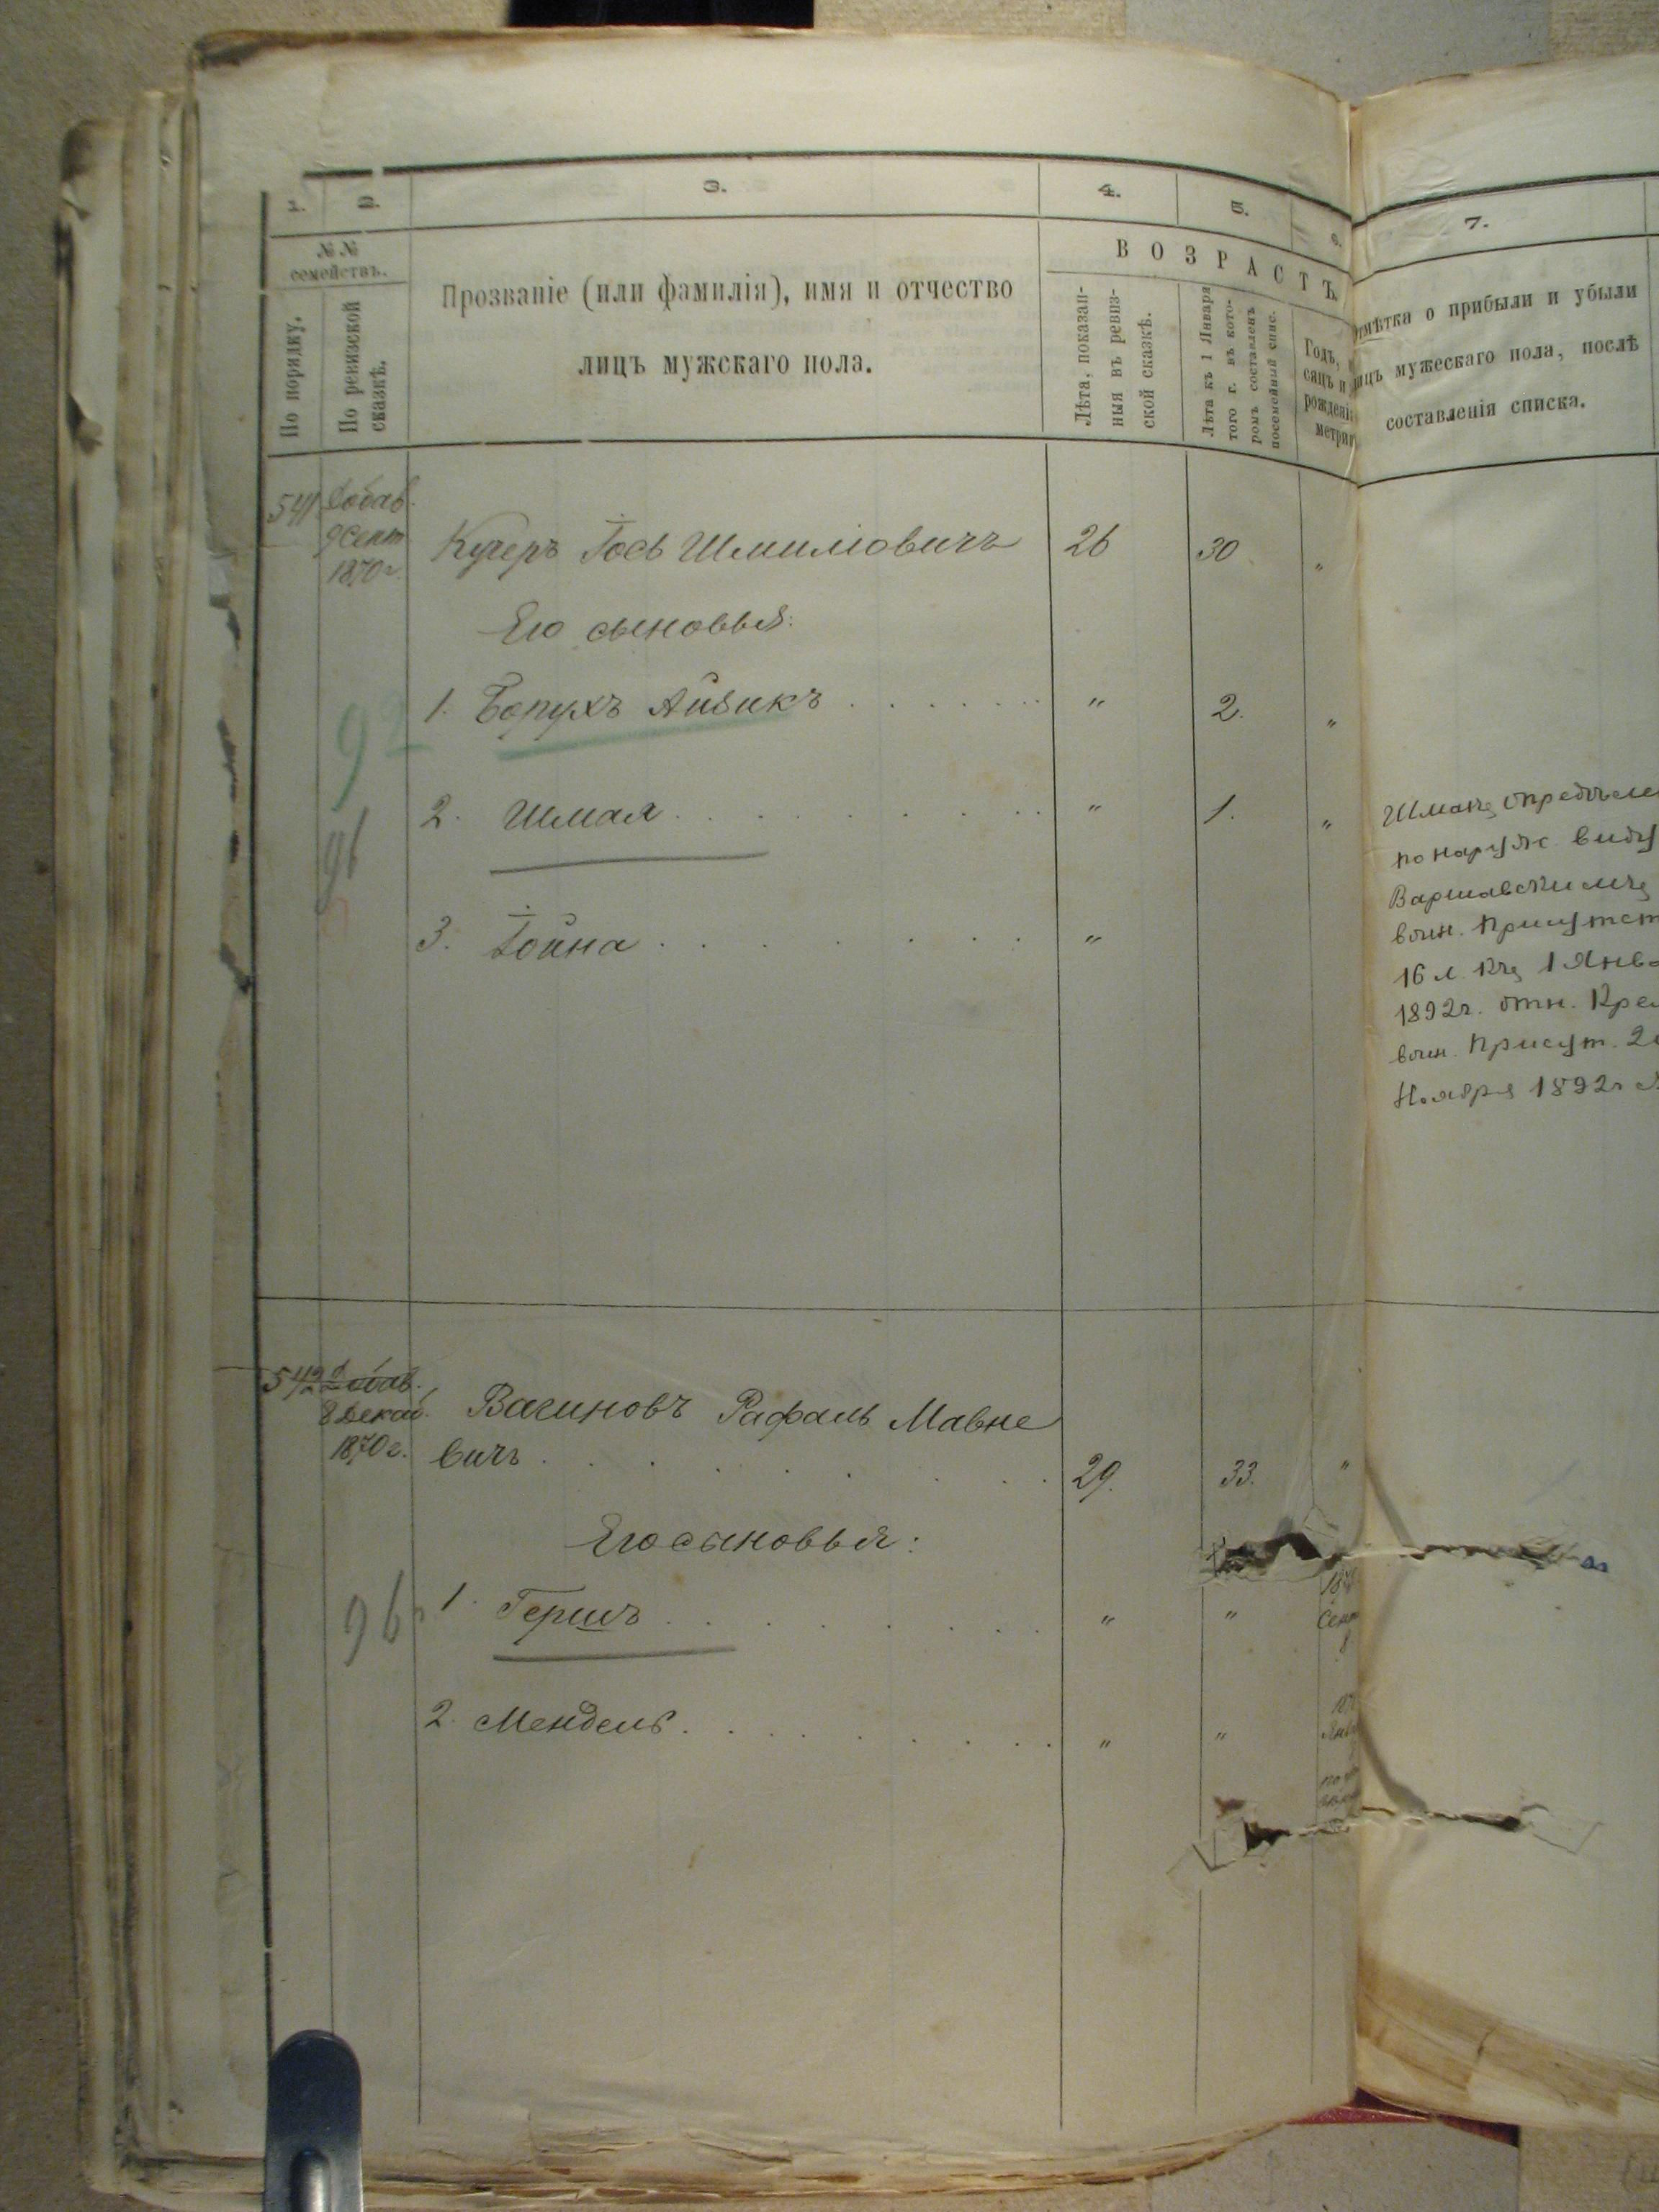 1.
2.
3.
4.
5.
6.
7.
№ №
семействъ.
По порядку.
По ревизской
сказкѣ.
Прозваніе (или фамилія), имя и отчество
лицъ мужскаго пола.
ВОЗРАСТЪ
Лѣта, показан-
ныя въ ревиз-
ской сказкѣ.
Лѣта къ 1 Января
того г. въ кото-
ромъ составленъ
посемейный спис.
Годъ,
сацъ и
рожденія
метрич
Отмѣтка о прибыли и убыли
лицъ мужескаго пола, послѣ
составленія списка.
541 Добав.
9 Сент
1870 г.
Кучеръ Іось Шмиліовичъ 26 30 "
Его сыновья:
1. Борухъ Айзикъ " 2. "
92
2. Шмая " 1. "
96
3. Іойна "
Шмая опредѣле
по наруж виду
Варшавскимъ
воин. Присутст
16 л. къ 1 Янва
1892г. отн. Кре
воин. Присут. 2
Ноября 1892г
542 Добав.
8 Декаб.
1870 г.
Вагиновъ Рафаль Мавше
вичъ 29. 33. "
Его сыновья:
96 1. Гершъ " "
Сент
8
2. Мендель " "
Янв